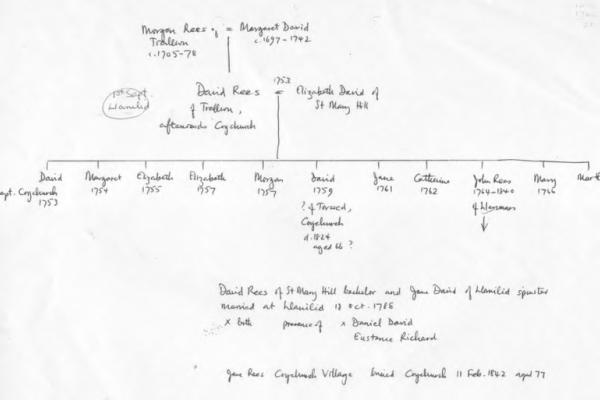 Morgan Rees of = Margaret David
Trallwn c.1697-1742
c.1705-78
1753
1st Sept. David Rees = Elizabeth David of
Llanilid of Trallwn, St Mary Hill
afterwards Coychurch
David Margaret Elizabeth Elizabeth Morgan David Jane Catherine John Rees Mary
Coychurch 1754 1755 1757 1757 1759 1761 1762 1764-1840 1766
1753 ? of Torwed, of Llansannor
Coychurch
d.1824
aged 66 ?
David Rees of St Mary Hill bachelor and Jane David of Llanilid spinster
married at Llanilid Oct. 1788
x both presence of x Daniel David
Eustance Richard
Jane Rees Coychurch Village buried Coychurch 11 Feb. 1842 aged 77